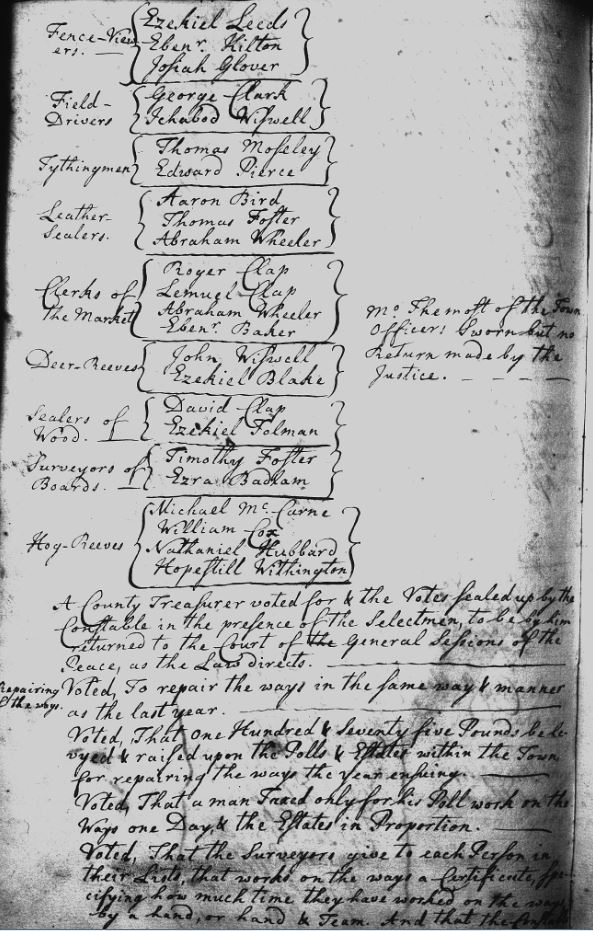 Fence-View
ers.
Ezekiel Leeds
Ebenr. Kilton
Josiah Glover
Field-
Drivers
George Clark
Ichabod Wiswell
Tythingmen
Thomas Moseley
Edward Pierce
Leather-
Sealers.
Aaron Bird
Thomas Foster
Abraham Wheeler
Clerks of
the Market
Roger Clap
Lemuel Clap
Abraham Wheeler
Ebenr. Baker
Mo. The most of the Town
Officers Sworn but no
Return made by the
Justice.
Deer-Reeves
John Wiswell
Ezekiel Blake
Sealers of
Wood.
David Clap
Ezekiel Tolman
Surveyors of
Boards.
Timothy Foster
Ezra Badlam
Hog-Reeves
Michael Mc. Carne
William Cox
Nathaniel Hubbard
Hopestill Withington
A County Treasurer voted for & the Votes sealed up by the
Constable in the presence of the Selectmen, to be by him
returned to the Court of the General Sessions of the
Peace, as the Law directs.
Repairing
the ways.
Voted, To repair the ways in the same way & manner
as the last year.
Voted, That one Hundred & Seventy five Pounds be le-
vyed & raised upon the Polls & Estates within the Town
for repairing the ways the year ensuing.
Voted, That a man Taxed only for his Poll work on the
Ways one Day, & the Estates in Proportion.
Voted, That the Surveyors give to each Person in
their Lists, that works on the ways a Certificate, spe-
cifying how much time they have worked on the ways
by a hand, or hand & Team. And that the